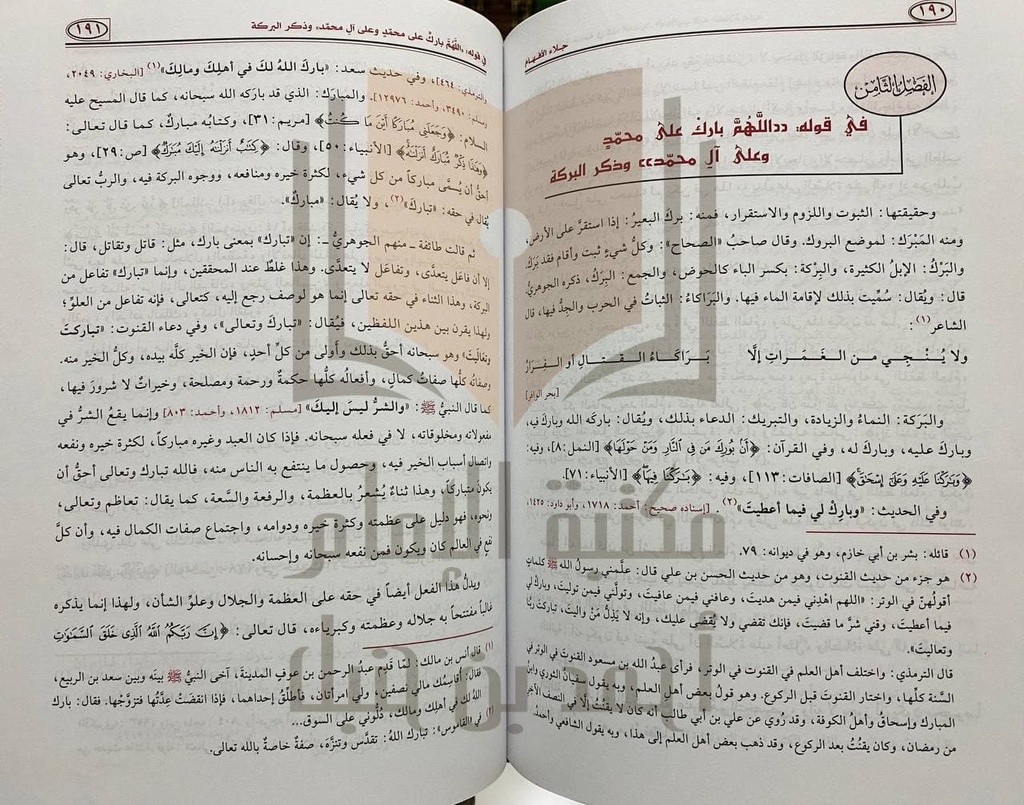 ١٩٠
جلاء الأفهام
الفَصْلُ الثَّامِن
في قوله: ((اللَّهُمَّ بارِكْ على محمّدٍ
وعلى آلِ محمّد)) وذكر البركة
وحقيقتها: الثبوت واللزوم والاستقرار، فمنه: بركَ البعيرُ: إذا استقرَّ على الأرض،
ومنه المَبْرَك: لموضع البروك. وقال صاحبُ «الصحاح»: وكلُّ شيءٍ ثبت وأقام فقد بَرَكَ.
والبَرْكُ: الإبلُ الكثيرة، والبِرْكة: بكسر الباء كالحوض، والجمع: البِرَكُ، ذكره الجوهريُّ
قال: ويُقال: سُمِّيت بذلك لإقامة الماء فيها. والبَرَاكاءُ: الثباتُ في الحرب والجدُّ فيها، قال
الشاعر(١):
ولا يُـنْـجِـي من الـغَـمَـراتِ إلَّا بَـرَاكَـاءُ الـقـتـالِ أو الـفِـرَارُ
[بحر الوافر]
والبَرَكة: النماءُ والزيادة، والتبريك: الدعاء بذلك، ويُقال: باركه الله وبارك فيه،
وبارك عليه، وبارك له، وفي القرآن: ﴿أَنۢ بُورِكَ مَن فِي ٱلنَّارِ وَمَنۡ حَوۡلَهَا﴾ [النمل:٨]، وفيه:
﴿وَبَٰرَكۡنَا عَلَيۡهِ وَعَلَىٰٓ إِسۡحَٰقَ﴾ [الصافات:١١٣]، وفيه: ﴿بَٰرَكۡنَا فِيهَا﴾ [الأنبياء:٧١].
وفي الحديث: «وبارِكْ لي فيما أعطيتَ»(٢). [إسناده صحيح: أحمد: ١٧١٨، وأبو داود: ١٤٢٥،
(١) قائله: بشر بن أبي خازم، وهو في ديوانه: ٧٩.
(٢) هو جزء من حديث القنوت، وهو من حديث الحسن بن علي قال: علَّمني رسولُ الله ﷺ كلماتٍ
أقولُهنّ في الوتر: «اللهم اهْدِني فيمن هديتَ، وعافني فيمن عافيتَ، وتولَّني فيمن توليتَ، وبارك لي
فيما أعطيتَ، وقني شرَّ ما قضيتَ، فإنك تقضي ولا يُقضى عليك، وإنه لا يَذِلُّ مَنْ واليتَ، تباركتَ ربَّنا
وتعاليتَ».
قال الترمذي: واختلف أهل العلم في القنوت في الوتر، فرأى عبدُ الله بن مسعود القنوتَ في الوتر في
السنة كلِّها، واختار القنوتَ قبل الركوع. وهو قولُ بعض أهل العلم، وبه يقول سفيانُ الثوري وابنُ
المبارك وإسحاقُ وأهلُ الكوفة، وقد رُوِي عن علي بن أبي طالب أنه كان لا يقنُتُ إلَّا في النصف الآخر
من رمضان، وكان يقنُتُ بعد الركوع، وقد ذهب بعض أهل العلم إلى هذا، وبه يقول الشافعي وأحمدُ.
في قوله: «اللَّهُمَّ بارِكْ على محمّدٍ وعلى آلِ محمّد» وذكر البركة
١٩١
والترمذي: ٤٦٤]، وفي حديث سعد: «بارَكَ اللهُ لكَ في أهلِكَ ومالِكَ»(١) [البخاري: ٢٠٤٩،
ومسلم: ٣٤٩٠، وأحمد: ١٢٩٧٦]. والمبارَك: الذي قد بارَكه الله سبحانه، كما قال المسيح عليه
السلام: ﴿وَجَعَلَنِي مُبَارَكًا أَيۡنَ مَا كُنتُ﴾ [مريم:٣١]، وكتابُه مباركٌ، كما قال تعالى:
﴿وَهَٰذَا ذِكۡرٞ مُّبَارَكٌ أَنزَلۡنَٰهُ﴾ [الأنبياء:٥٠]، وقال: ﴿كِتَٰبٌ أَنزَلۡنَٰهُ إِلَيۡكَ مُبَٰرَكٞ﴾ [ص:٢٩]، وهو
أحقُّ أن يُسمَّى مباركاً من كل شيء، لكثرة خيره ومنافعه، ووجوه البركة فيه، والربُّ تعالى
يُقال في حقه: «تبارك»(٢)، ولا يُقال: «مباركٌ».
ثم قالت طائفة - منهم الجوهريُّ -: إن «تبارك» بمعنى بارك، مثل: قاتل وتقاتل، قال:
إلا أن فاعَل يتعدَّى، وتفاعَل لا يتعدَّى. وهذا غلطٌ عند المحققين، وإنما «تبارك» تفاعل من
البركة، وهذا الثناء في حقه تعالى إنما هو لوصف رجع إليه، كتعالى، فإنه تفاعل من العلوِّ؛
ولهذا يقرن بين هذين اللفظين، فيُقال: «تبارك وتعالى»، وفي دعاء القنوت: «تباركتَ
وتعالَيتَ» وهو سبحانه أحقُّ بذلك وأَولى من كلِّ أحدٍ، فإن الخير كلَّه بيده، وكلُّ الخير منه.
وصفاتُه كلُّها صفاتُ كمال، وأفعالُه كلُّها حكمةٌ ورحمة ومصلحة، وخيراتٌ لا شرورَ فيها،
كما قال النبيُّ ﷺ: «والشرُّ ليس إليكَ» [مسلم: ١٨١٢، وأحمد: ٨٠٣] وإنما يقعُ الشرُّ في
مفعولاته ومخلوقاته، لا في فعله سبحانه. فإذا كان العبد وغيره مباركاً، لكثرة خيره ونفعه
واتصال أسباب الخير فيه، وحصول ما ينتفع به الناس منه. فالله تبارك وتعالى أحقُّ أن
يكونَ متبارِكاً، وهذا ثناءٌ يُشعرُ بالعظمة، والرفعة والسَّعة، كما يقال: تعاظم وتعالى،
ونحوه، فهو دليل على عظمته وكثرة خيره ودوامه، واجتماع صفات الكمال فيه، وأن كلَّ
نفعٍ في العالم كان ويكون فمن نفعه سبحانه وإحسانه.
ويدلُّ هذا الفعل أيضاً في حقه على العظمة والجلال وعلوِّ الشأن، ولهذا إنما يذكره
غالباً مفتتحاً به جلاله وعظمته وكبرياءه، قال تعالى: ﴿إِنَّ رَبَّكُمُ ٱللَّهُ ٱلَّذِي خَلَقَ ٱلسَّمَٰوَٰتِ
(١) قال أنس بن مالك: لمّا قَدِم عبدُ الرحمن بن عوفٍ المدينةَ، آخى النبيُّ ﷺ بينه وبين سعد بن الربيع،
فقال: أُقاسِمُك مالي نصفين، ولي امرأتان، فأطلِّقُ إحداهما، فإذا انقضَت عِدَّتُها فتزوَّجْها. فقال: بارك
اللهُ لك في أهلِك ومالِك، دُلُّوني على السوق...
(٢) في «القاموس»: تبارك اللهُ: تقدَّس وتنزَّه، صفةٌ خاصةٌ بالله تعالى.
مكتبة الإمام
أحمد بن حنبل